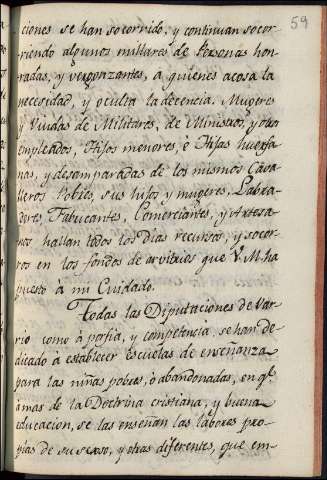 59
ciones se han socorrido, y continuan socor-
riendo algunos millares de Personas hon-
radas, y vergonzantes, a quienes acosa la
necesidad, y oculta la decencia. Mugeres
y Viudas de Militares, de Ministros, y otros
empleados, Hijos menores, è Hijas huerfa-
nas, y desamparadas de los mismos Cava-
lleros Pobres, sus hijos y mugeres, Labra-
dores, Fabricantes, Comerciantes, y Artesa-
nos hallan todos los dias recursos, y socor-
ros en los fondos de arvitrios que V. M. ha
puesto à mi Cuidado.
Todas las Diputaciones de Var-
rio como à porfia, y competencia, se han de-
dicado à establecer escuelas de enseñanza
para las niñas pobres, ò abandonadas, en q.e
amas de la Doctrina cristiana, y buena
educacion, se las enseñan las labores pro-
pias de su sexo, y otras diferentes, que em-